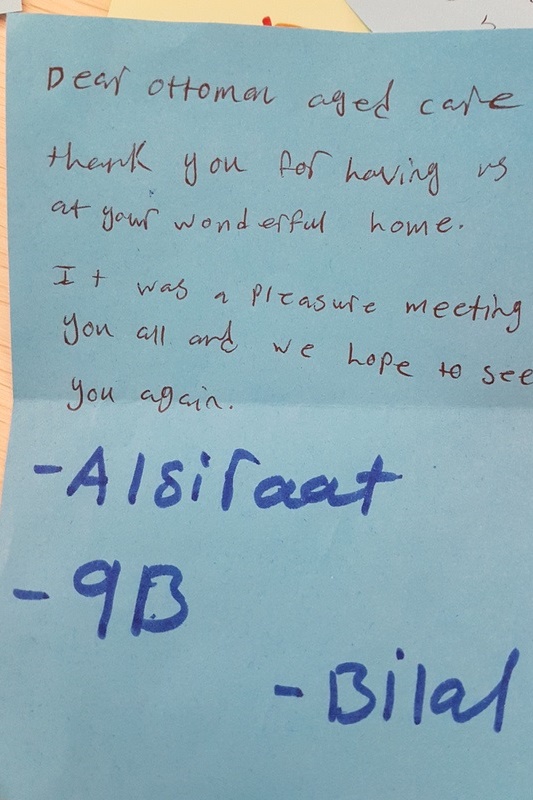 Dear ottoman aged care
thank you for having us
at your wonderful home.
It was a pleasure meeting
you all and we hope to see
you again.
-Alsiraat
-9B
-Bilal